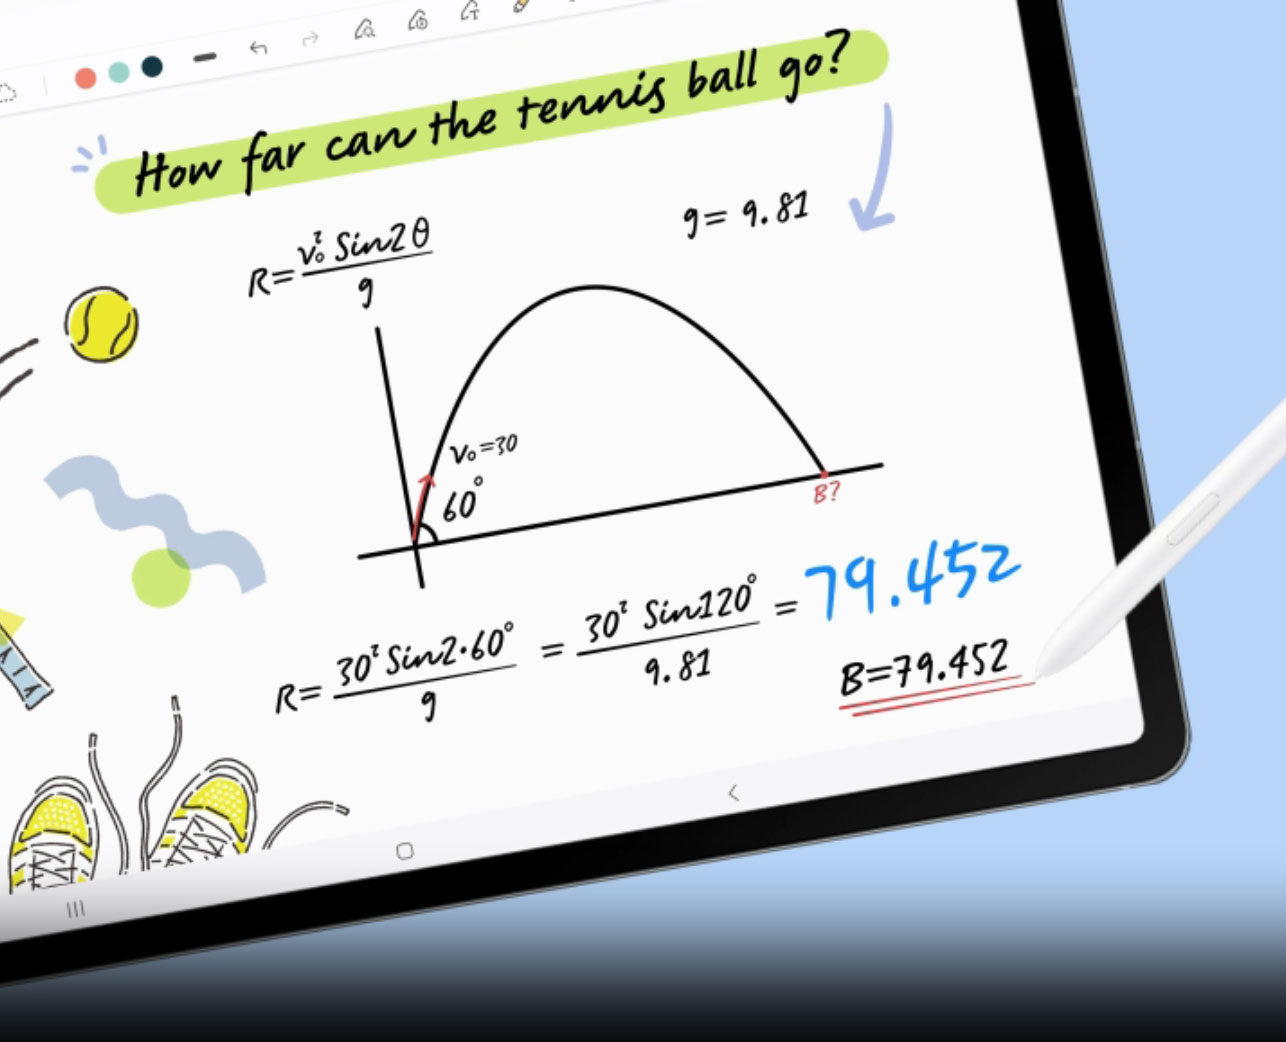 How far can the tennis ball go?
R = v₀² Sin2θ / g
g = 9.81
v₀ = 30
60°
B?
R = 30² Sin2·60° / g = 30² Sin120° / 9.81 = 79.452
B=79.452